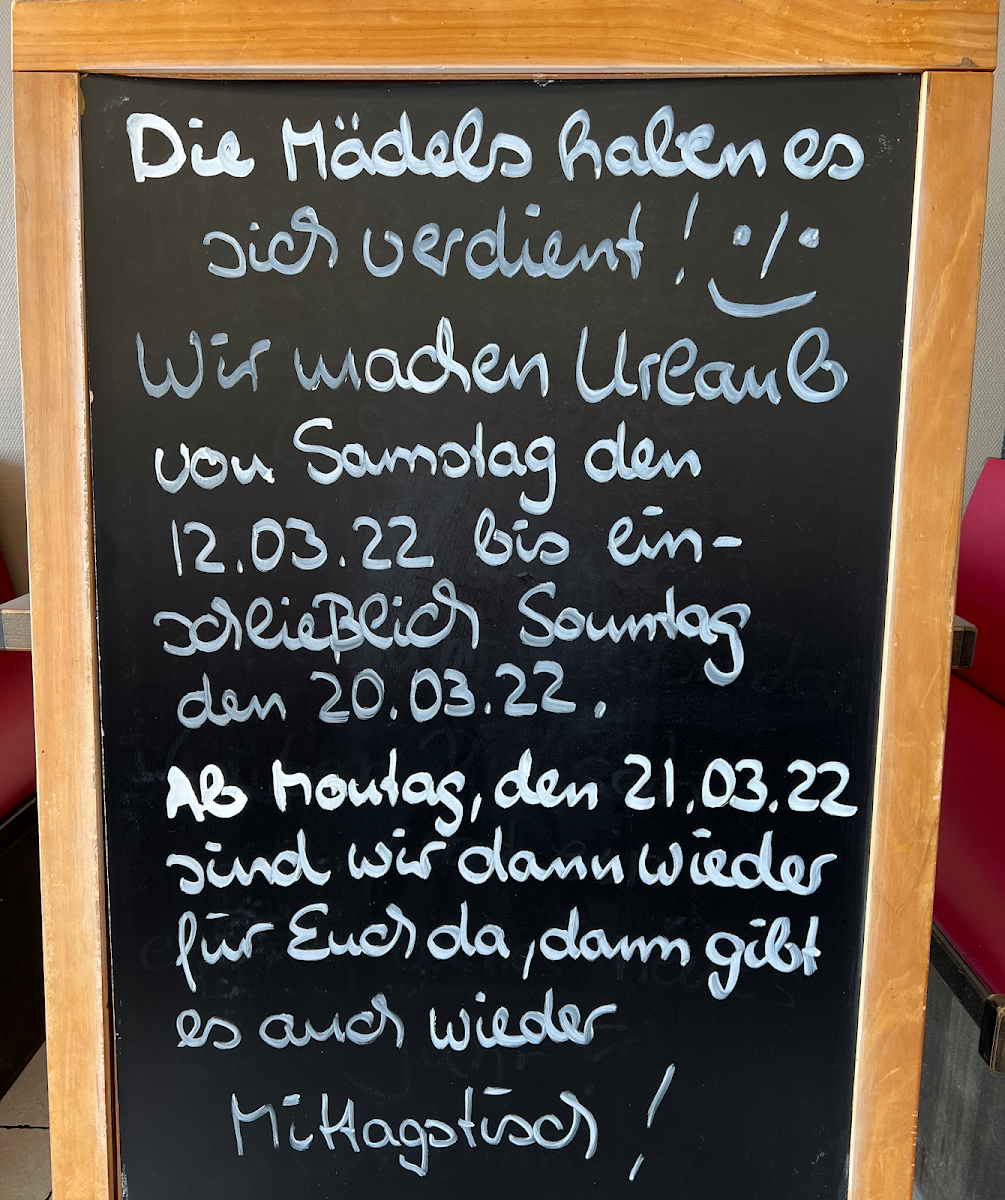 Die Mädels haben es
sich verdient!
Wir machen Urlaub
von Samstag den
12.03.22 bis ein-
schließlich Sonntag
den 20.03.22.
Ab Montag, den 21.03.22
sind wir dann wieder
für Euch da, dann gibt
es auch wieder
Mittagstisch!